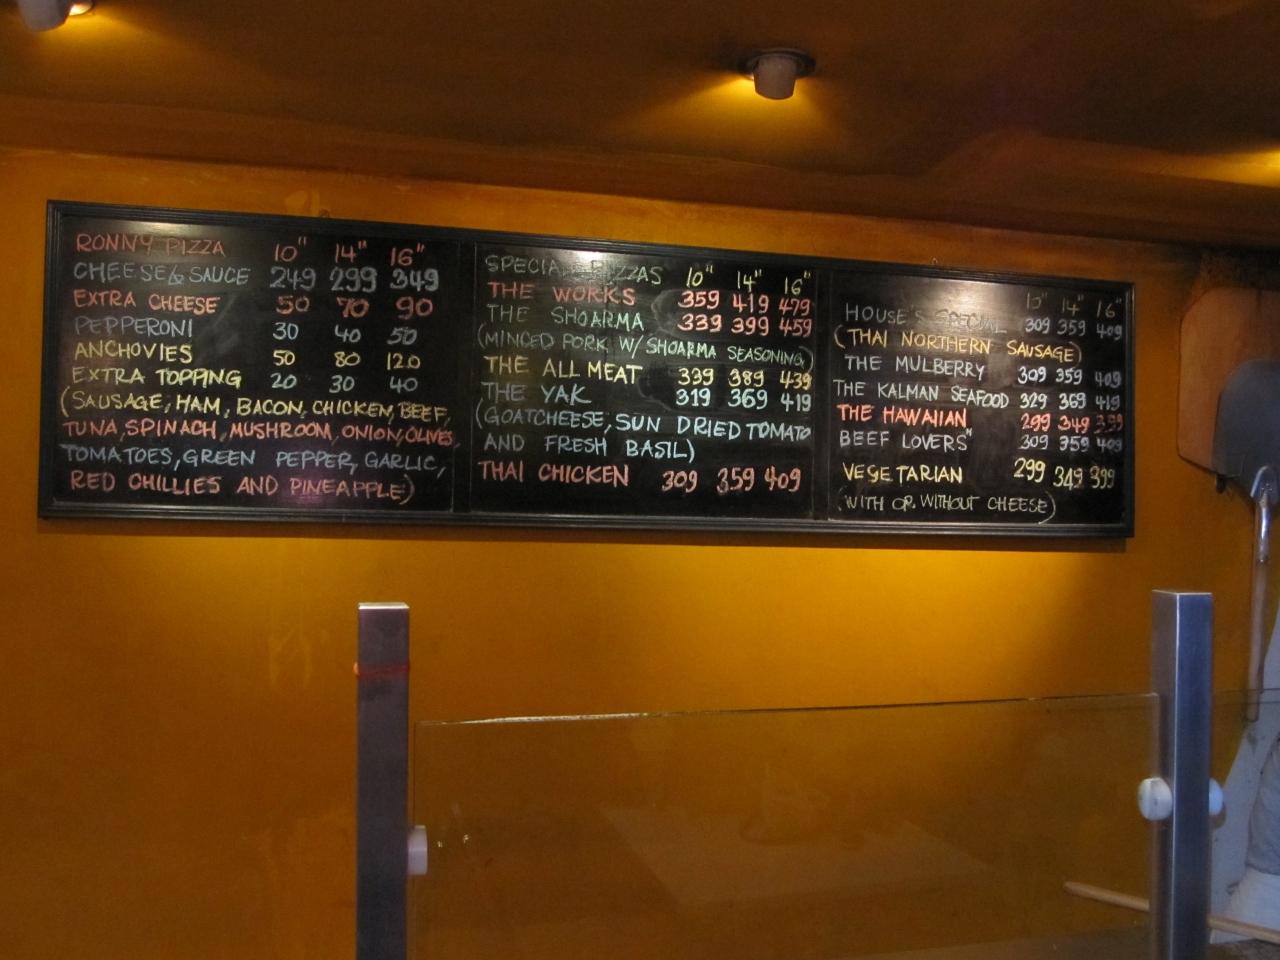 RONNY PIZZA 10" 14" 16"
CHEESE & SAUCE 249 299 349
EXTRA CHEESE 50 70 90
PEPPERONI 30 40 50
ANCHOVIES 50 80 120
EXTRA TOPPING 20 30 40
(SAUSAGE, HAM, BACON, CHICKEN, BEEF,
TUNA, SPINACH, MUSHROOM, ONION, OLIVES
TOMATOES, GREEN PEPPER, GARLIC,
RED CHILLIES AND PINEAPPLE)
SPECIAL PIZZAS 10" 14" 16"
THE WORKS 359 419 479
THE SHOARMA 339 399 459
(MINCED PORK W/ SHOARMA SEASONING)
THE ALL MEAT 339 389 439
THE YAK 319 369 419
(GOATCHEESE, SUN DRIED TOMATO
AND FRESH BASIL)
THAI CHICKEN 309 359 409
10" 14" 16"
HOUSE'S SPECIAL 309 359 409
(THAI NORTHERN SAUSAGE)
THE MULBERRY 309 359 409
THE KALMAN SEAFOOD 329 369 419
THE HAWAIIAN 299 349 399
BEEF LOVERS" 309 359 409
VEGETARIAN 299 349 399
(WITH OR WITHOUT CHEESE)